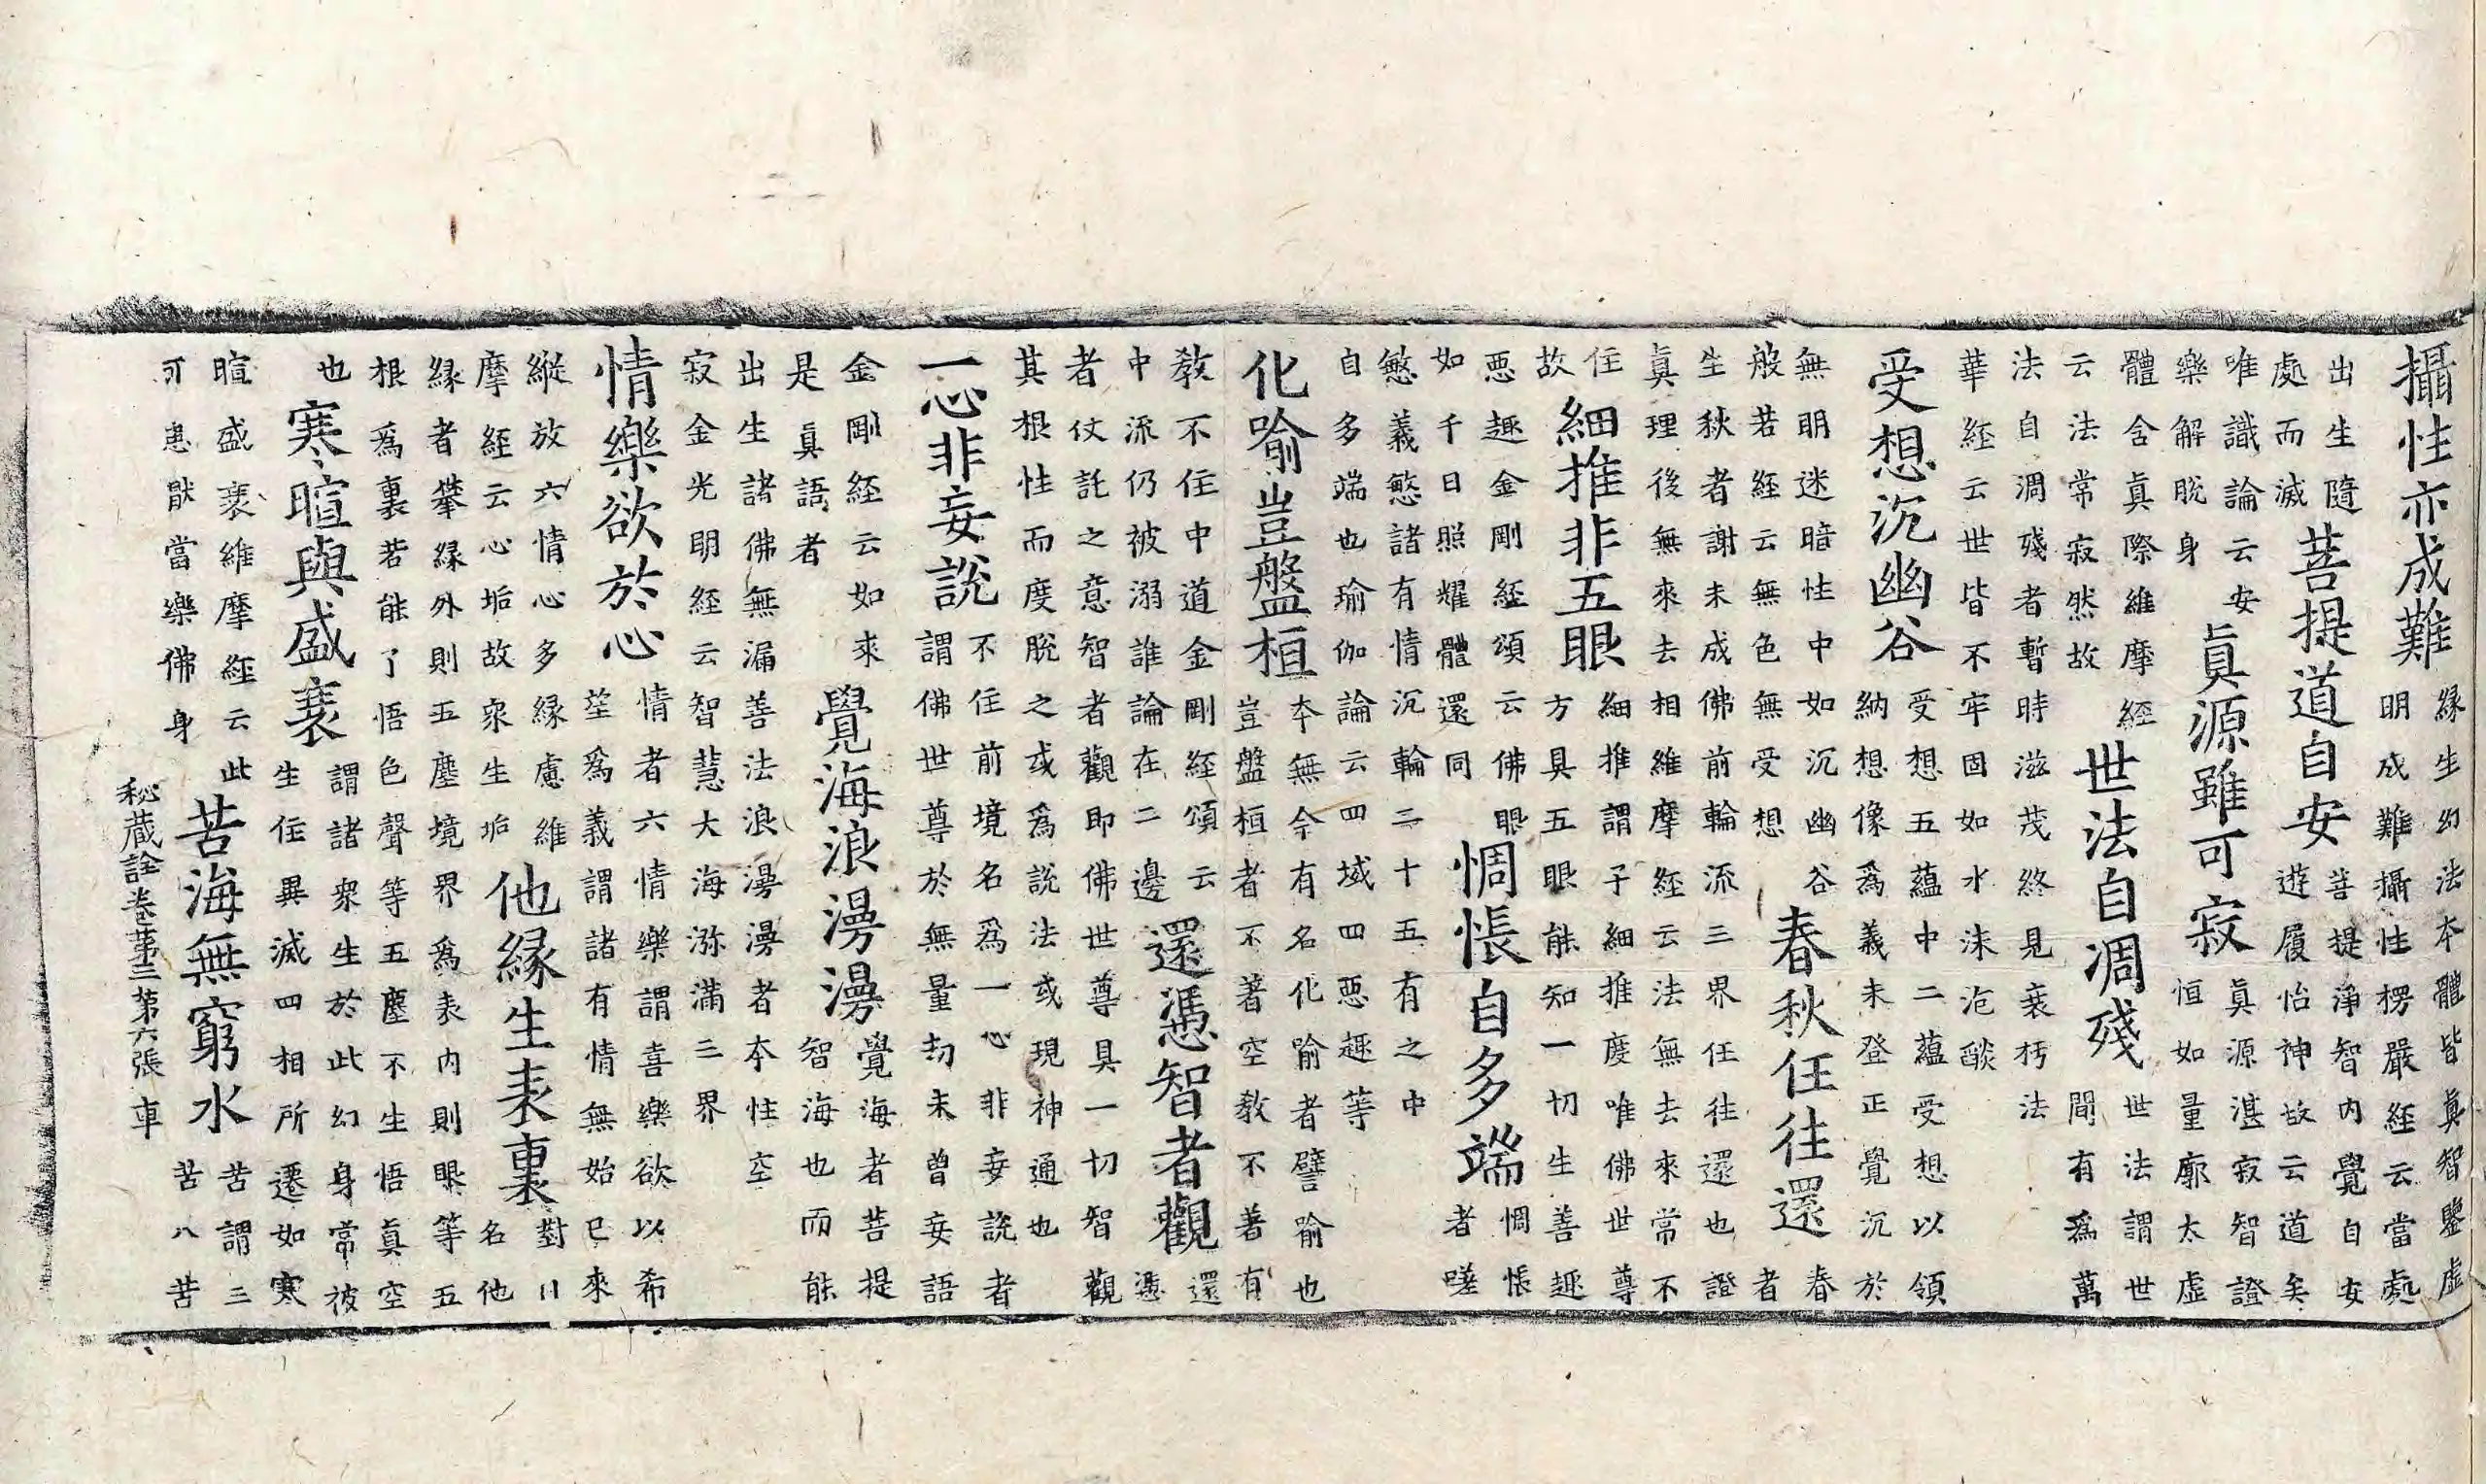 攝性亦成難
緣生幻法本體皆眞智鑒虛
明成難攝性楞嚴經云當處
出生隨
處而滅
菩提道自安
菩提淨智内覺自安
遊履怡神故云道矣
唯識論云安
樂解脫身
眞源雖可寂
眞源湛寂智證
恒如量廓太虛
體含眞際維摩經
云法常寂然故
世法自凋殘
世法謂世
間有爲萬
法自凋殘者暫時滋茂終見衰朽法
華經云世皆不牢固如水沫泡燄
受想沉幽谷
受想五蘊中二蘊受想以領
納想像爲義未登正覺沉於
無明迷暗性中如沉幽谷
般若經云無色無受想
春秋任往還
春
者
生秋者謝未成佛前輪流三界任往還也證
眞理後無來去相維摩經云法無去來常不
住
故
細推非五眼
細推謂子細推度唯佛世尊
方具五眼能知一切生善趣
惡趣金剛經頌云佛眼
如千日照耀體還同
惆悵自多端
惆悵
者嗟
慜義慜諸有情沉輪三十五有之中
自多端也瑜伽論云四域四惡趣等
化喻豈盤桓
本無今有名化喻者譬喻也
豈盤桓者不著空教不著有
教不住中道金剛經頌云
中流仍被溺誰論在二邊
還憑智者觀
還
憑
者仗託之意智者觀即佛世尊具一切智觀
其根性而度脫之或爲說法或現神通也
一心非妄說
不住前境名爲一心非妄說者
謂佛世尊於無量劫未曾妄語
金剛經云如來
是眞語者
覺海浪澷澷
覺海者菩提
智海也而能
出生諸佛無漏善法浪澷澷者本性空
寂金光明經云智慧大海瀰滿三界
情樂欲於心
情者六情樂謂喜樂欲以希
爲義謂諸有情無始已來
縱放六情心多緣慮維
摩經云心垢故衆生垢
他緣生表裏
對
名他
緣者攀緣外則五塵境界爲表内則眼等五
根爲裏若能了悟色聲等五塵不生悟眞空
也
寒暄與盛衰
謂諸衆生於此幻身常被
生住異滅四相所遷如寒
暄盛衰維摩經云此
可患猒當樂佛身
苦海無窮水
苦謂三
苦八苦
秘蔵詮卷第三第六張 車